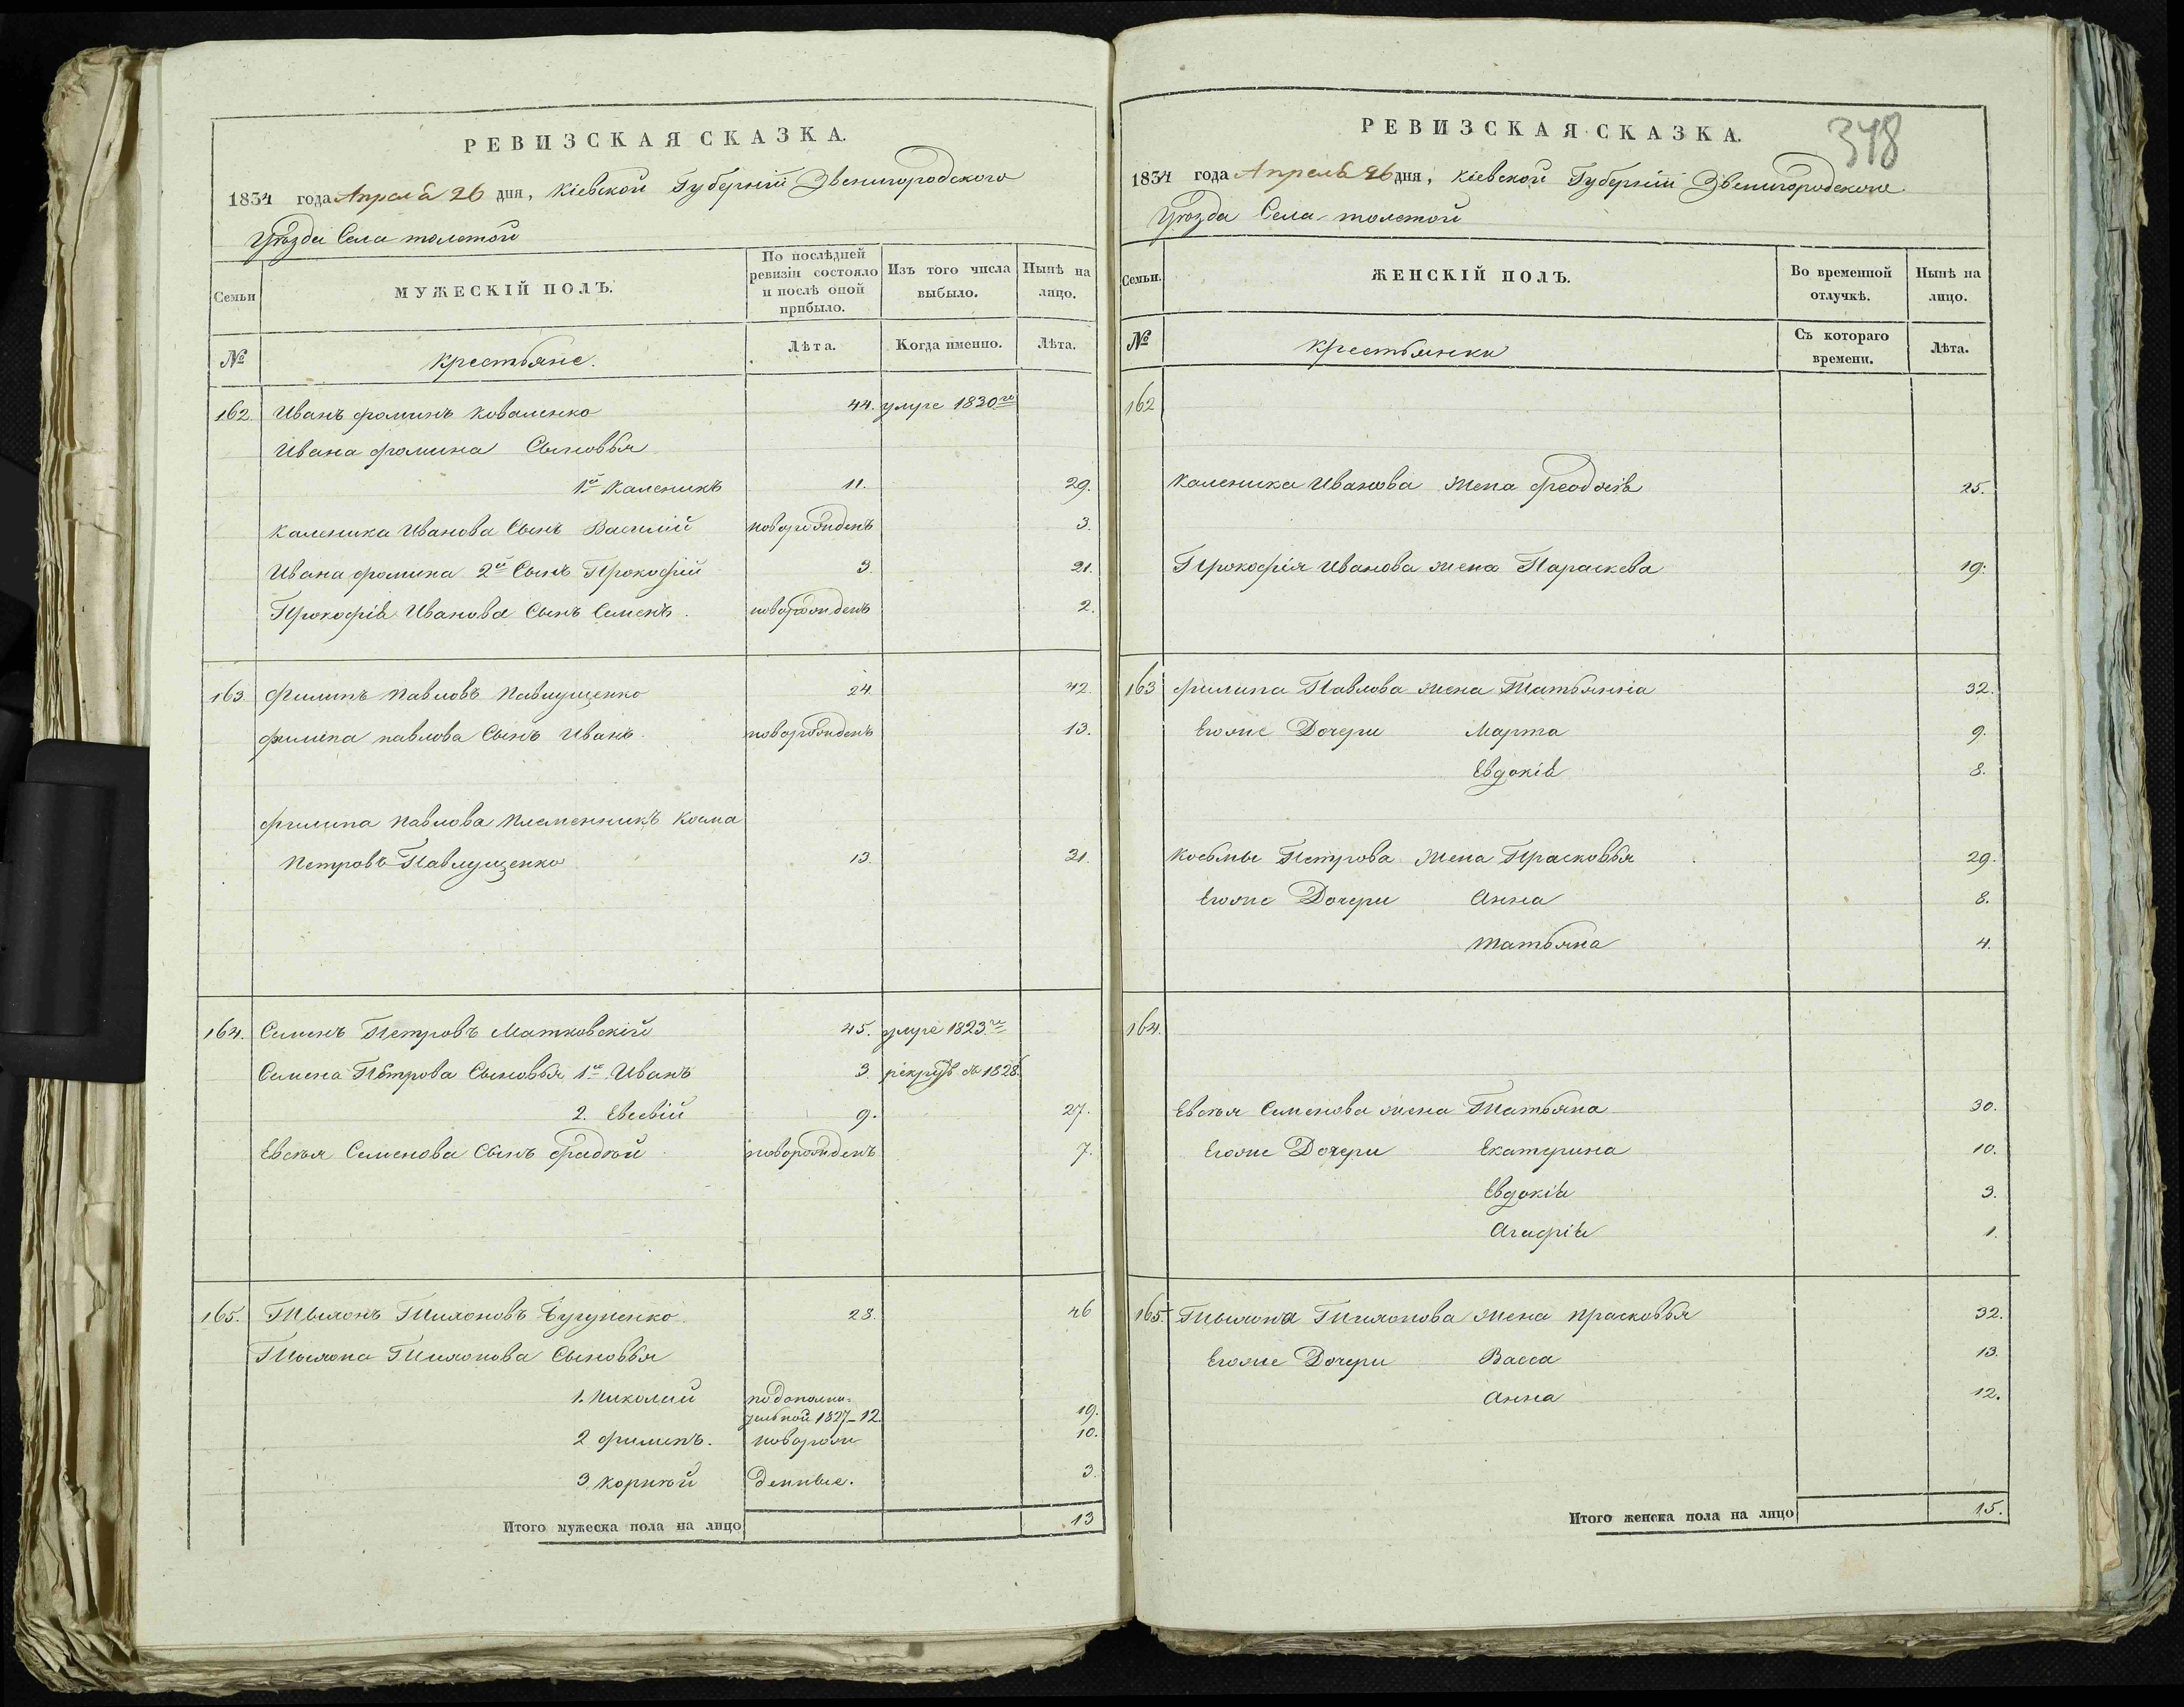 РЕВИЗСКАЯ СКАЗКА.
1834 года Апреля 26 дня, Кіевской Губерніи Звенигородского
Уѣзда Села толстой
Семьи
МУЖЕСКІЙ ПОЛЪ.
По послѣдней ревизіи состояло и послѣ оной прибыло.
Изъ того числа выбыло.
Нынѣ на лицо.
№
Крестьяне.
Лѣта.
Когда именно.
Лѣта.
162. Иванъ фоминъ Коваленко 44. умре 1830го
Ивана фомина Сыновья
1й Каленикъ 11. 29.
Каленика Иванова Сынъ Василій новорожденъ 3.
Ивана фомина 2й Сынъ Прокофій 3. 21.
Прокофія Иванова Сынъ Семенъ. новорожденъ 2.
163. Филипъ Павловъ Павлущенко 24. 42.
филипа павлова Сынъ Иванъ. новорожденъ 13.
филипа Павлова племенникъ Косма
Петровъ Павлущенко 13. 31.
164. Семенъ Петровъ Матковскій 45. умре 1823го
Семена Петрова Сыновья 1й Иванъ 3 рекрутъ съ 1828.
2. Евсевій 9. 27.
Евсѣя Семенова Сынъ фадѣй новорожденъ 7.
165. Тимонъ Тимоновъ Бугуненко. 28. 46
Тимона Тимонова Сыновья
1. Николай по дополни=
тельной 1827-12. 19.
2 филипъ. новорож 10.
3 Корнѣй денные. 3.
Итого мужеска пола на лицо 13
РЕВИЗСКАЯ СКАЗКА.
378
1834 года Апреля 26 дня, Кіевской Губерніи Звенигородского
Уѣзда Села толстой
Семьи.
ЖЕНСКІЙ ПОЛЪ.
Во временной отлучкѣ.
Нынѣ на лицо.
№
Крестьянки
Съ котораго времени.
Лѣта.
162
Каленика Иванова жена феодосія 25.
Прокофія Иванова жена Параскева 19.
163 филипа Павлова жена Татьянна 32.
Егоже Дочери Марта 9.
Евдокія 8.
Косьмы Петрова жена Прасковья 29.
Егоже Дочери Анна 8.
татьяна 4.
164.
Евсѣя Семенова жена Татьяна 30.
Егоже Дочери Екатерина 10.
Евдокія 3.
Агафія 1.
165. Тимона Тимонова жена прасковья 32.
Егоже Дочери Васса 13.
Анна 12.
Итого женска пола на лицо 15.